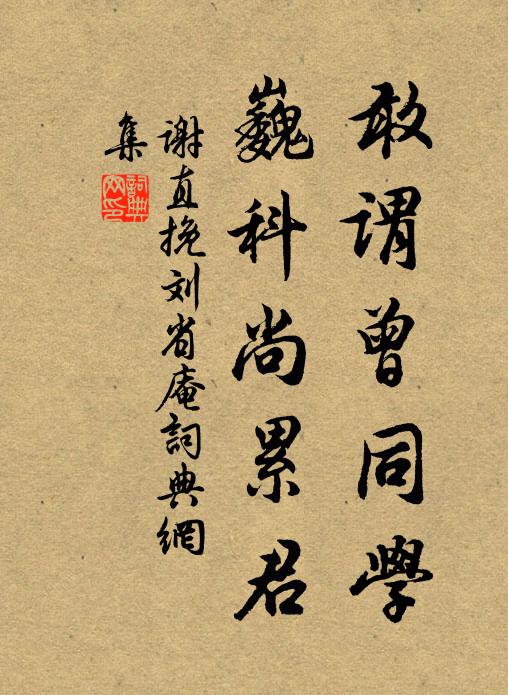 敢谓曾同學
巍科尚累君
谢直挽刘省庵詞典網
集
詞典网印